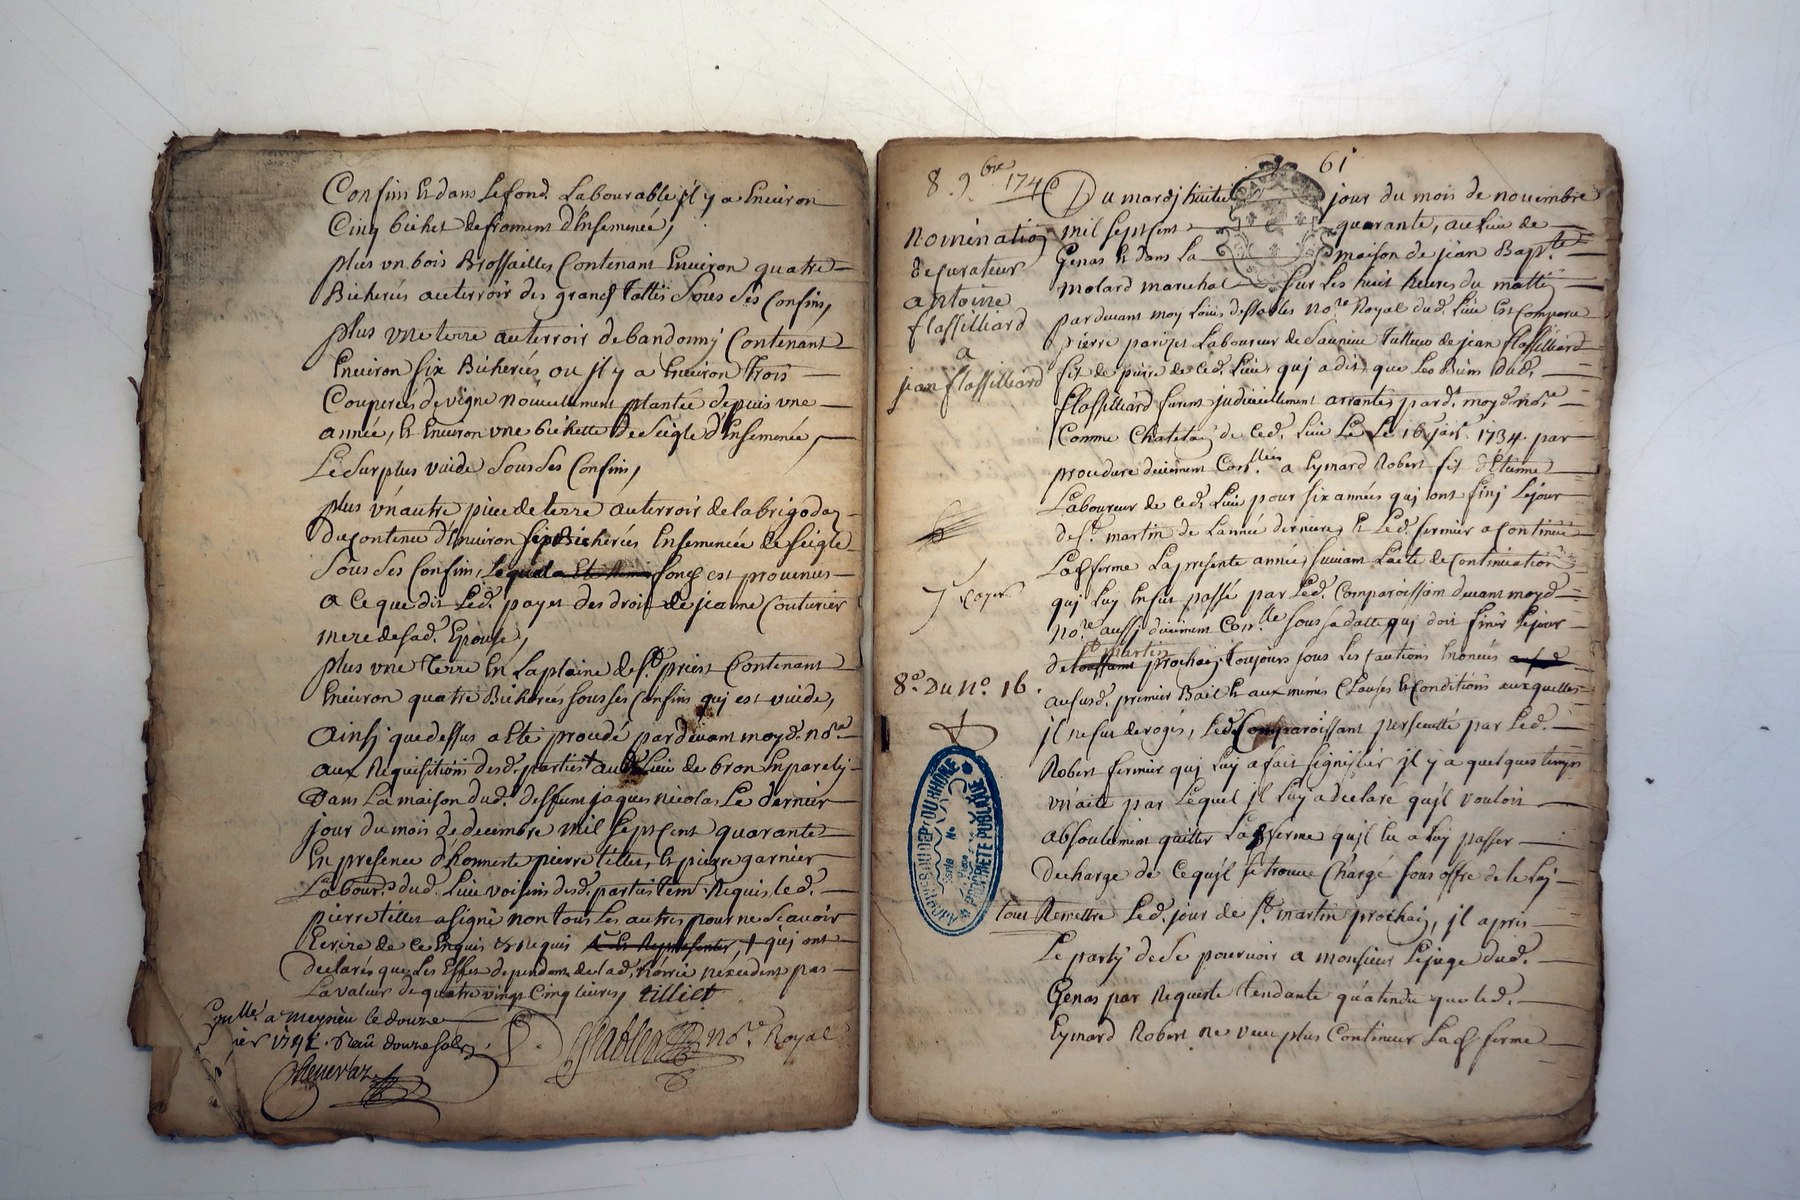 Confins Et dans Le fond Labourable jl y a Environ
Cinq bichet de froment d'Ensemencé,
plus vn bois Brossailles Contenant Environ quatre
Bicherées au terroir des grand Sous Ses Confins,
plus vne terre au terroir de bandonnj Contenant
Environ six Bicherées ou jl y a Environ trois
Couperées de vigne nouvellement plantée depuis vne
année, Et Environ vne bichette De Seigle d'Ensemencée,
Le Surplus vuide Sous Ses Confins,
plus vn autre piece de terre au terroir de la brigoda
Du contenu d'Environ sept Bicherées Ensemencée de Seigle
Sous Ses Confins, fond est provenus
a Ce que dit Led. payet des droit de jeanne Couturier
mere de sad. Epouse,
plus vne Terre En La plaine de St. priest Contenant
Environ quatre Bicherées sous ses Confins qui est vuide,
Ainsj que dessus a Eté procedé pardevant moyd. nore.
aux Requisitions desd. parties au Lieu de bron En parely
Dans La maison dud. deffunt jaques nicolas Le dernier
jour du mois de decembre mil Sept Cent quarante
En presence d'honneste pierre tillet, Et pierre garnier
Labours. dud. Lieu voisins desd. parties tem. Requis led.
pierre tillet a signé non tous Les autres pour ne Scavoir
Ecrire de ce Enquis & Requis & quj ont
declarés que Les Effets dependant de lad. hoirie nexcedent pas
La valeur de quatre vingt Cinq Livres, tillet
nore. Royal
Conllé. a meyzieu le douze
1741. Reçu douze sols
8. 9bre 1740
61
Du mardj huitie jour du mois de novembre
mil sept cent quarante, au Lieu de
Genas Et dans La maison de jean Bapte.
molard marechal Sur Les huit heures du mattin
pardevant moy Louis desSables nore. Royal dud. Lieu Est Comparu
pierre parizet Laboureur de Saunieu Tutteur de jean flassilliard
fil de pierre de Ced. Lieu, quj a dit, que Les Biens dud.
flassilliard furent judiciellement arrantés, pard. moyd. nore.
Comme Chatelain de Ced. Lieu Le 16 janr. 1734. par
procedure deüement Conllée. a Eymard Robert fil d'Etienne
Laboureur de Ced. Lieu pour six années quj ont finj Lejour
de St. martin de L'année derniere, Et Led. fermier a Continué
Lad. ferme La presente année suivant L'acte de Continuation
quj Luy En fut passé par Led. Comparoissant devant moyd.
nore. aussj deüement Conlle. sous sa datte, quj doit finir Lejour
de St martin prochain, Toujours sous Les Cautions Enoncées
au susd. premier Bail Et aux mêmes Clauses Et Conditions auxquelles
jl ne fut derogés, Led. Comparoissant persecutté par Led.
Robert fermier quj Luy a fait signiffier jl y a quelques temps
vn acte par Lequel jl Luy a declaré qu'jl vouloit
absoulument quitter Lad. ferme qu'jl Eu a Luy passer
decharge de Ce qu'jl se trouve Chargé sous offre de le Luj
tout Remettre Led. jour de St. martin prochain, jl a pris
Le partj de Se pourvoir a monsieur Lejuge dud.
Genas par Requeste tendante qu'atendu que led.
Eymard Robert ne veut plus Continuer Lad. ferme
nomination
de curateur
antoine
flassilliard
a
jean flassilliard
8e. Du No. 16.
ARCHIVES DU DEPt DU RHÔNE
PROPRIÉTÉ PUBLIQUE